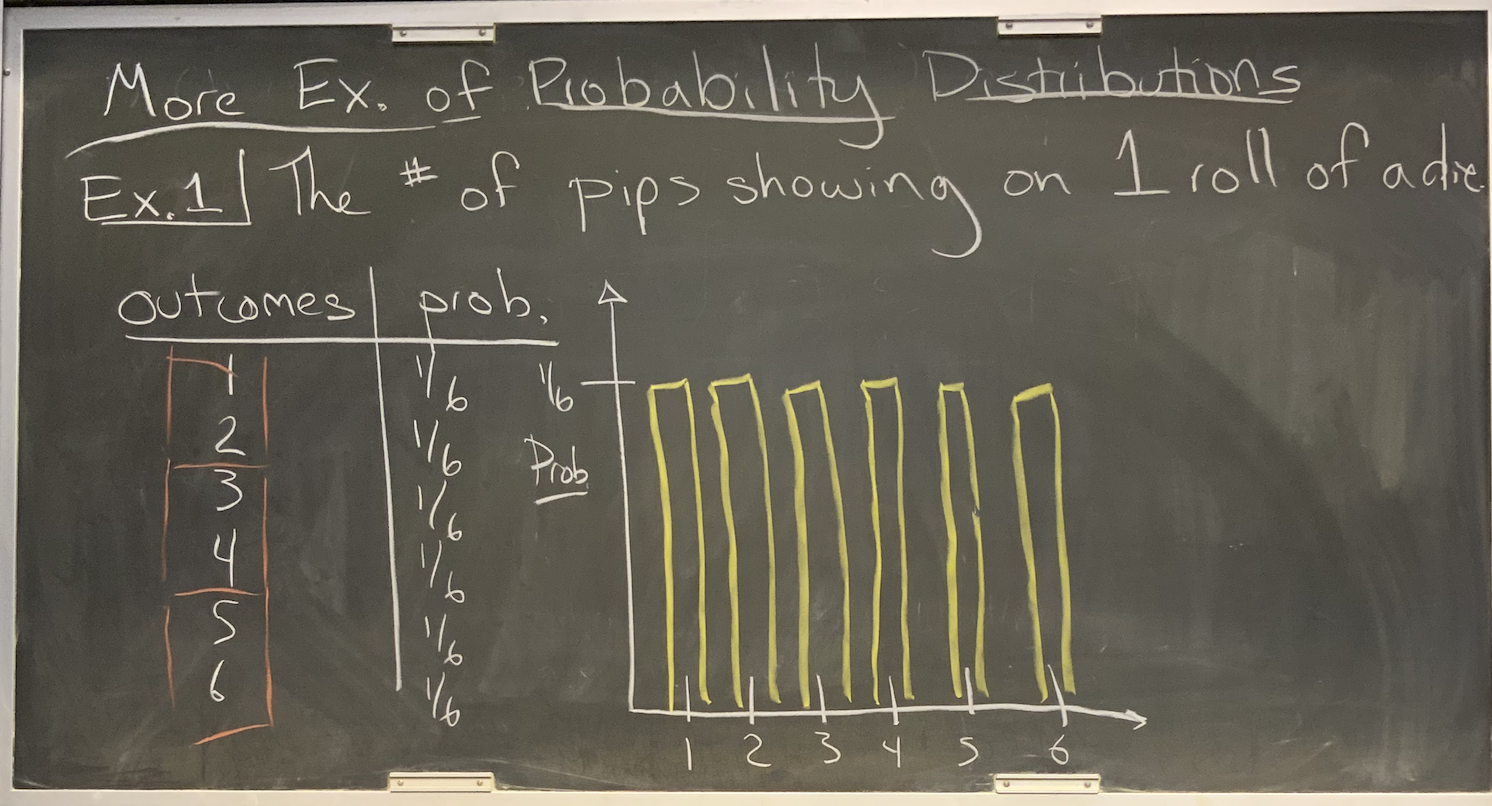 More Ex. of Probability Distributions
Ex. 1 The # of pips showing on 1 roll of a die.
outcomes prob.
1 1/6
2 1/6
3 1/6
4 1/6
5 1/6
6 1/6
1/6
Prob
1 2 3 4 5 6